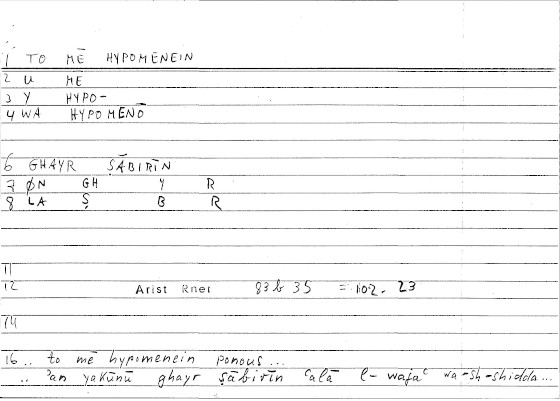 1 TO MĒ HYPOMENEIN
2 U MĒ
3 Y HYPO-
4 WA HYPOMENŌ
6 GHAYR ṢĀBIRĪN
7 ØN GH Y R
8 LA Ṣ B R
11
12 Arist Rhet 83b 35 = 102. 23
14
16 .. to mē hypomenein ponous...
.. ʾan yakūnū ghayr ṣābirīn ʿalā l-wajaʿ wa-sh-shidda...